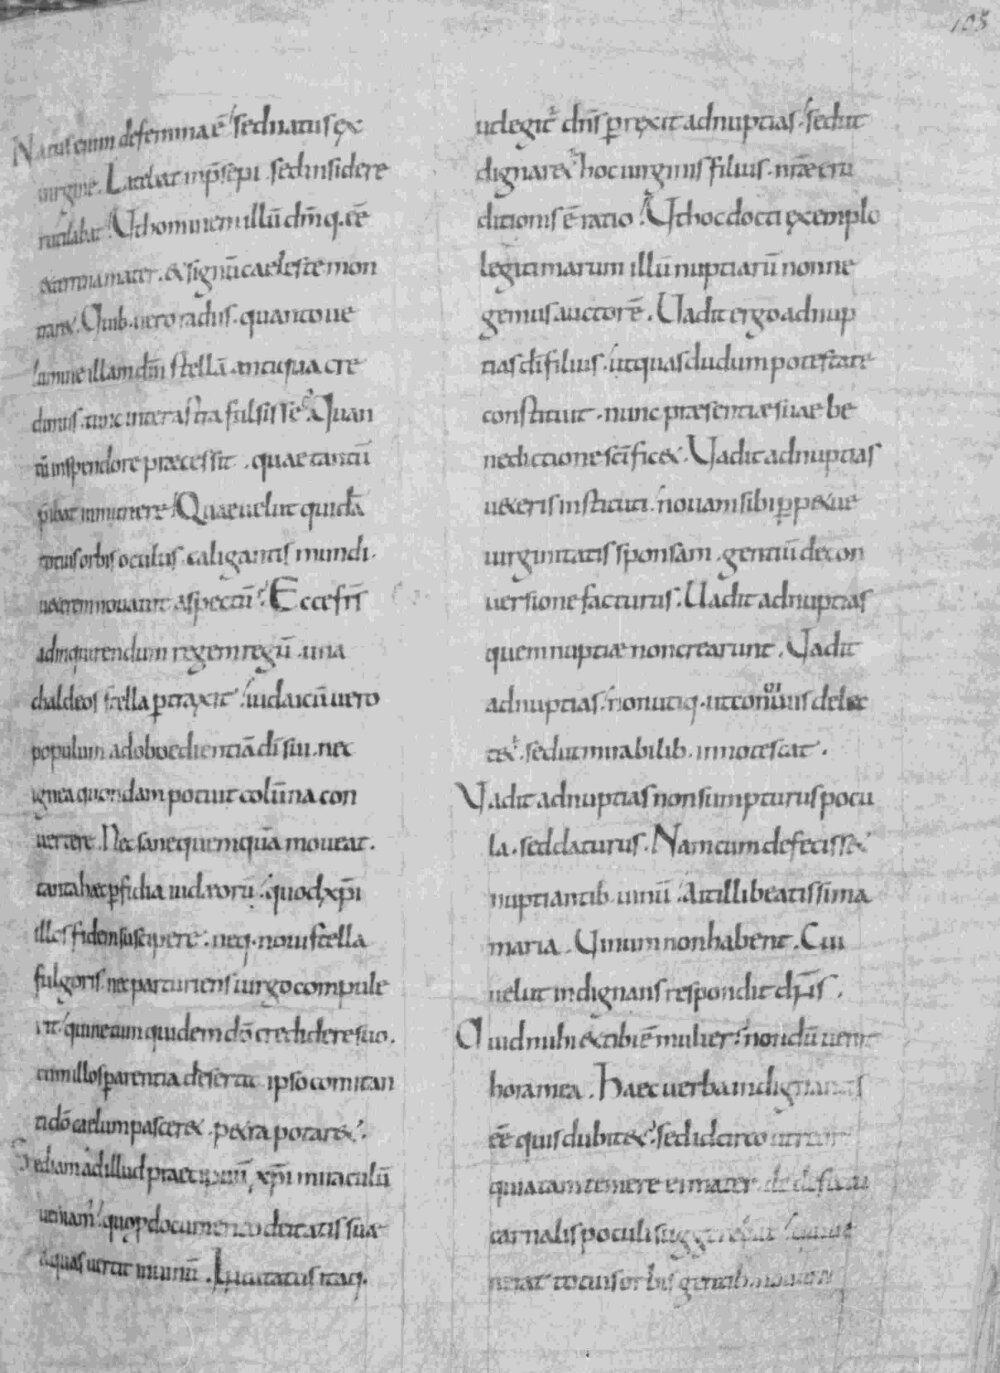 105
Natus enim de femina ē sed natus ex
uirgine. Latebat in p̄sepi. sed in sidere
rutilabat. Ut hominem illū dm̄q. eē
et terrena mater. et signū caeleste mon
traret. Quib. uero radiis. quanto ue
lumine illam dn̄i stellā antiqua cre
dimus. tunc inter astra fulsisse? Quan
tū in splendore praecessit. quae tantū
p̄ibat in munere? Quae uelut quidā
totius orbis oculus. caligantis mundi.
ueterem nouauit aspectū. Ecce frs̄
ad inquirendum regem regū. una
chaldeos stella ptraxit. iudaicū uero
populum ad oboedientiā dī sui. nec
ignea quondam potuit colūna con
uertere. Nec sane quemquā moueat.
tanta haec pfidia iudaeorū. quod xp̄i
illos fidem suscipere. neq. noui stella
fulgoris. nec parturiens uirgo compule
rit. qui ne tum quidem dō credidere suo.
cum illos p arentia deserta. ipso comitan
te dō caelum pasceret. petra potaret.
Sed iam ad illud praecipuū xp̄i miraculū
ueniam. quo p documento deitatis suae
aquas uertit in uinū. Inuitatus itaq.
ut legit̄ dn̄s prexit ad nuptias. sed ut
dignaret̄ hoc uirginis filius. nr̄ae cre
ditionis ē ratio. Ut hoc docti exemplo
legitimarum illū nuptiarū non ne
gemus auctorē. Uadit ergo ad nup
tias dī filius. ut quas dudum potestate
constituit. nunc praesentiae suae be
nedictione sc̄ificet. Uadit ad nuptias
ueteris instituti. nouam sibi ppetue
uirginitatis sponsam. gentiū de con
uersione facturus. Uadit ad nuptias
quem nuptiae non crearunt. Uadit
ad nuptias. non utiq. ut conuiuiis delec
tet̄. sed ut mirabilib. innotescat.
Uadit ad nuptias non sumpturus pocu
la. sed daturus. Nam cum defecisset
nuptiantib. uinū. Ait illi beatissima
maria. Uinum non habent. Cui
uelut indignans respondit dn̄s.
Quid mihi et tibi ē mulier. nondū uenit
hora mea. Haec uerba indignantis
eē quis dubitet. sed idcirco ut reor
quia tam temere ei mater de defectu
carnalis poculi suggerebat
totius orbis gentib.